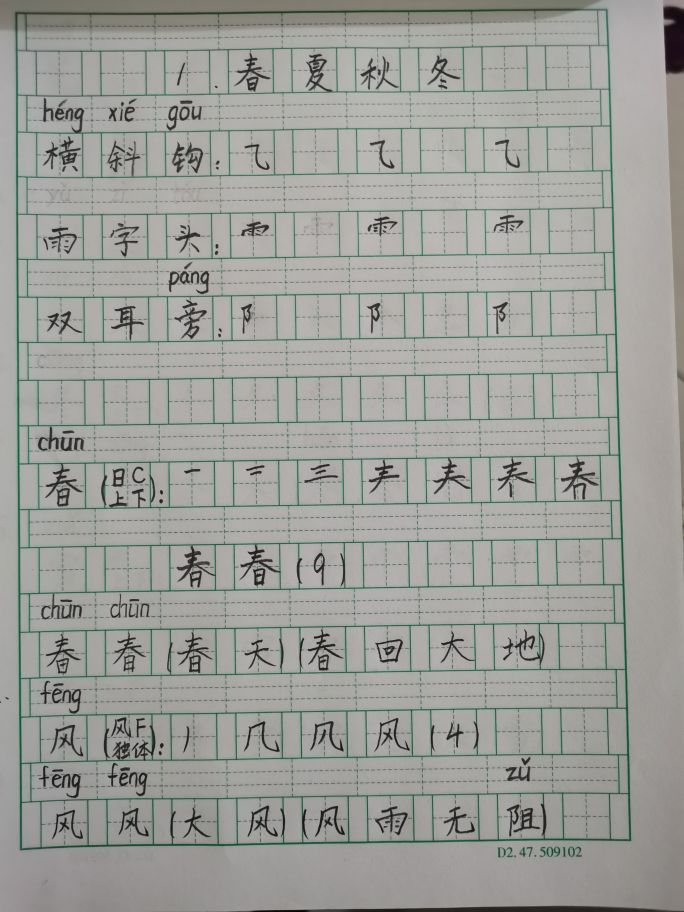 1.春夏秋冬
héng xié gōu
横斜钩:⺄ ⺄ ⺄
雨字头:⻗ ⻗ ⻗
páng
双耳旁:阝 阝 阝
chūn
春(日C上下):一 二 三 𡗗
春 春(9)
chūn chūn
春 春(春天)(春回大地)
fēng
风(风F独体):丿 几 凤 风(4)
fēng fēng zǔ
风 风(大风)(风雨无阻)
D2.47.509102